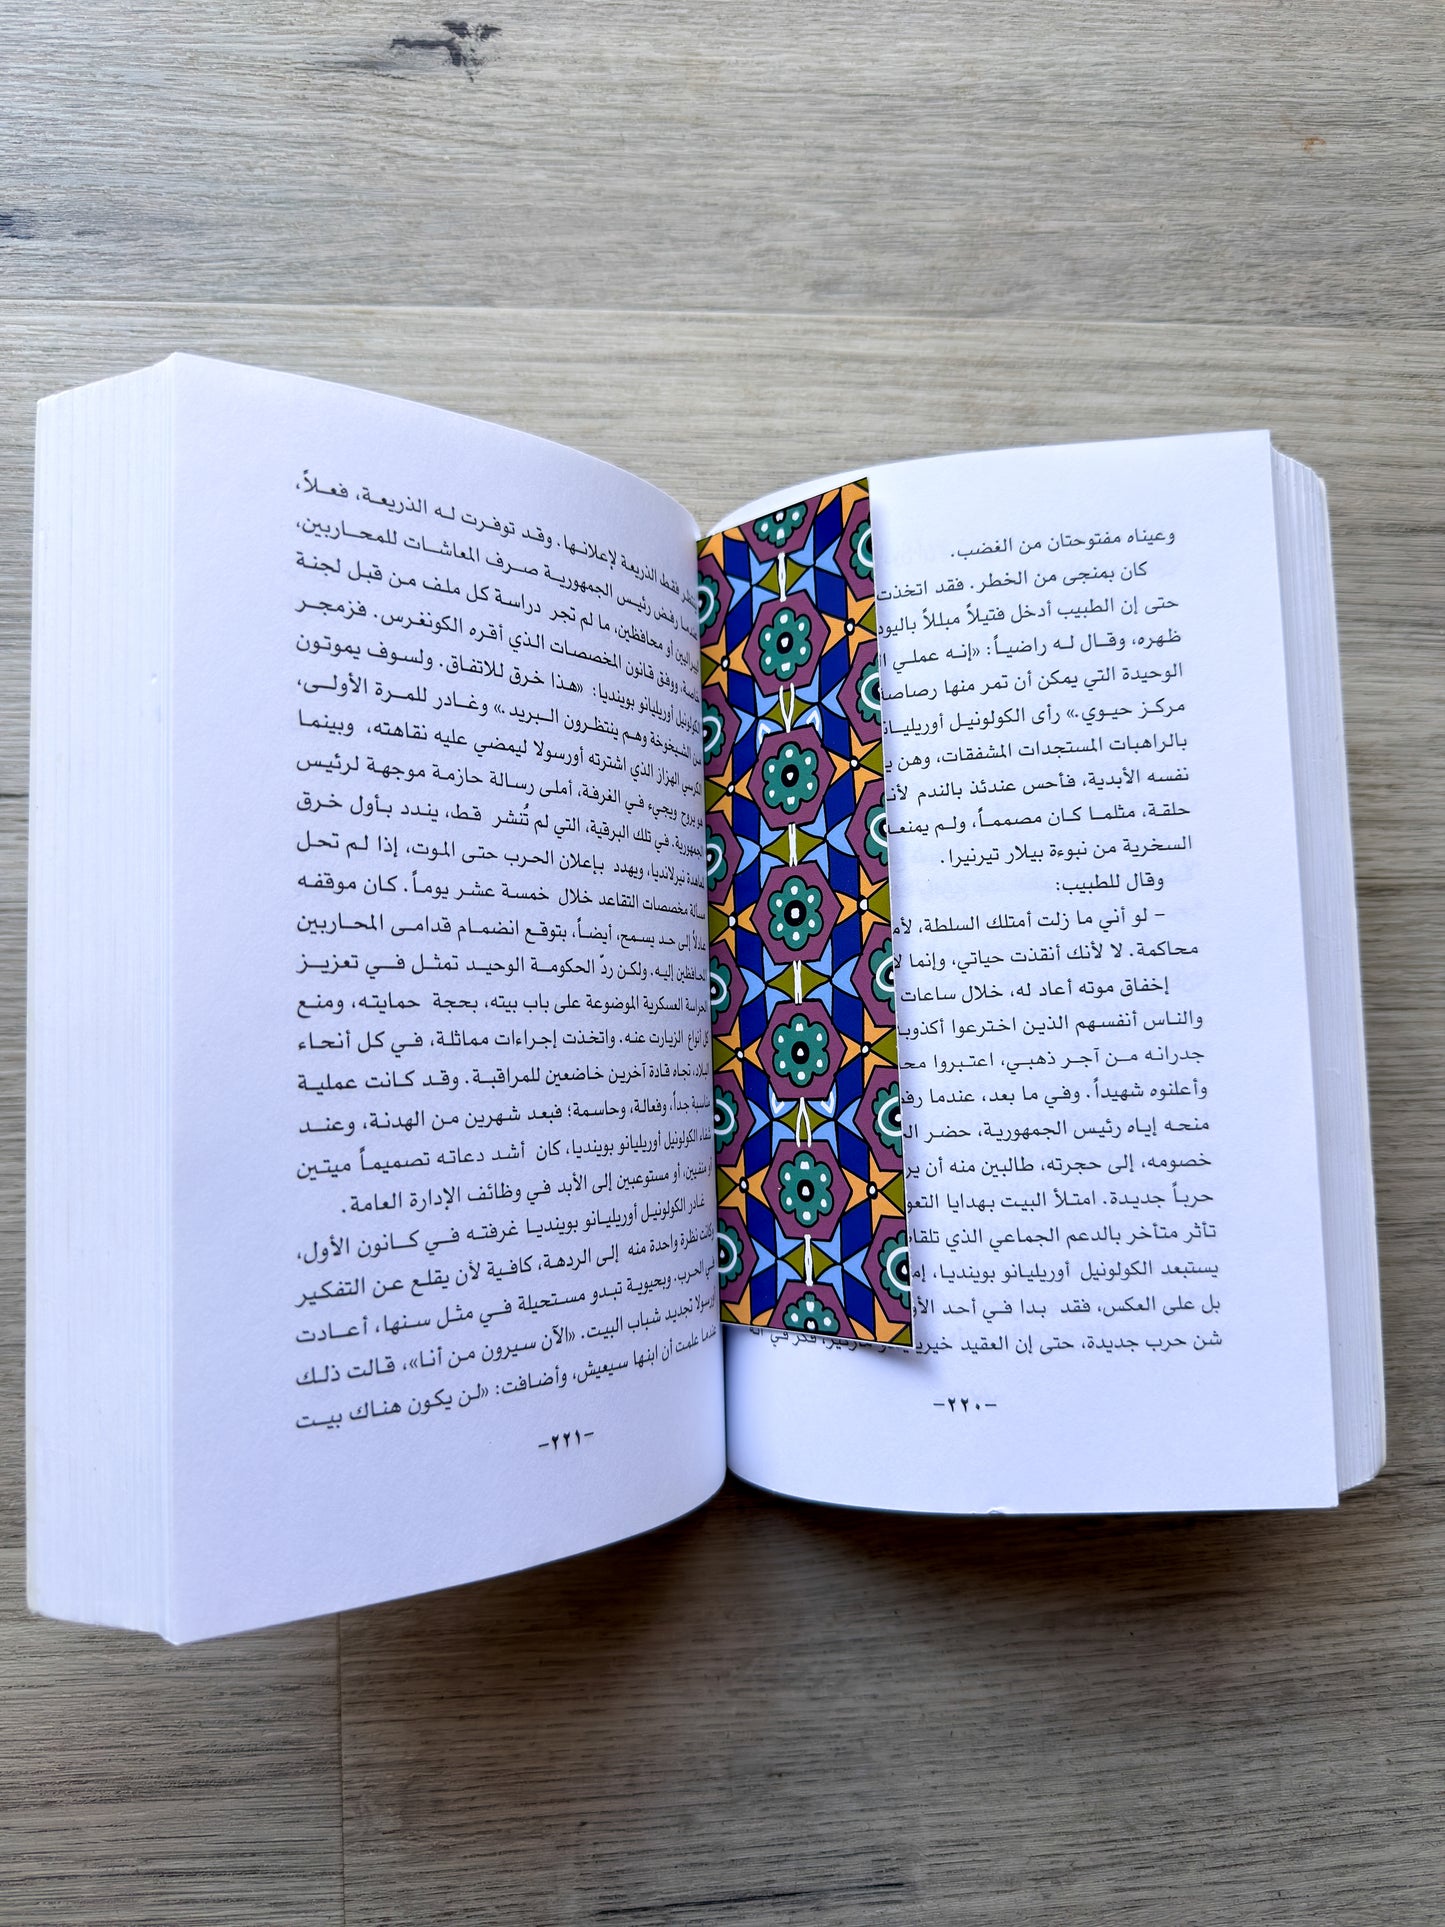 وعيناه مفتوحتان من الغضب.
كان بمنجى من الخطر. فقد اتخذت
حتى إن الطبيب أدخل فتيلاً مبللاً باليود
ظهره، وقال له راضياً: «إنه عملي
الوحيدة التي يمكن أن تمر منها رصاصة
مركز حيوي.» رأى الكولونيل أوريليانو
بالراهبات المستجدات المشفقات، وهن
نفسه الأبدية، فأحس عندئذ بالندم لأنه
حلقة، مثلما كان مصمماً، ولم يمنعه
السخرية من نبوءة بيلار تيرنيرا.
وقال للطبيب:
- لو أني ما زلت أمتلك السلطة،
محاكمة. لا لأنك أنقذت حياتي، وإنما
إخفاق موته أعاد له، خلال ساعات
والناس أنفسهم الذين اخترعوا
جدرانه من آجر ذهبي، اعتبروا
وأعلنوه شهيداً. وفي ما بعد، عندما
منحه إياه رئيس الجمهورية، حضر
خصومه، إلى حجرته، طالبين منه أن
حرباً جديدة. امتلأ البيت بهدايا
تأثر متأخر بالدعم الجماعي الذي
يستبعد الكولونيل أوريليانو بوينديا،
بل على العكس، فقد بدا في أحد
شن حرب جديدة، حتى إن العقيد فكر في أنه
-٢٢٠-
ينتظر فقط الذريعة لإعلانها. وقد توفرت له الذريعة، فعلاً،
عندما رفض رئيس الجمهورية صرف المعاشات للمحاربين،
ليبراليين أو محافظين، ما لم تجر دراسة كل ملف من قبل لجنة
خاصة، ووفق قانون المخصصات الذي أقره الكونغرس. فزمجر
الكولونيل أوريليانو بوينديا: «هذا خرق للاتفاق. ولسوف يموتون
من الشيخوخة وهم ينتظرون البريد.» وغادر للمرة الأولى،
الكرسي الهزاز الذي اشترته أورسولا ليمضي عليه نقاهته، وبينما
هو يروح ويجيء في الغرفة، أملى رسالة حازمة موجهة لرئيس
الجمهورية. في تلك البرقية، التي لم تُنشر قط، يندد بأول خرق
لمعاهدة نيرلانديا، ويهدد بإعلان الحرب حتى الموت، إذا لم تحل
مسألة مخصصات التقاعد خلال خمسة عشر يوماً. كان موقفه
عادلاً إلى حد يسمح، أيضاً، بتوقع انضمام قدامى المحاربين
المحافظين إليه. ولكن ردّ الحكومة الوحيد تمثل في تعزيز
الحراسة العسكرية الموضوعة على باب بيته، بحجة حمايته، ومنع
كل أنواع الزيارت عنه. واتخذت إجراءات مماثلة، في كل أنحاء
البلاد، تجاه قادة آخرين خاضعين للمراقبة. وقد كانت عملية
مناسبة جداً، وفعالة، وحاسمة؛ فبعد شهرين من الهدنة، وعند
شفاء الكولونيل أوريليانو بوينديا، كان أشد دعاته تصميماً ميتين
أو منفيين، أو مستوعبين إلى الأبد في وظائف الإدارة العامة.
غادر الكولونيل أوريليانو بوينديا غرفته في كانون الأول،
وكانت نظرة واحدة منه إلى الردهة، كافية لأن يقلع عن التفكير
في الحرب. وبحيوية تبدو مستحيلة في مثل سنها، أعادت
أورسولا تجديد شباب البيت. «الآن سيرون من أنا»، قالت ذلك
عندما علمت أن ابنها سيعيش، وأضافت: «لن يكون هناك بيت
-٢٢١-